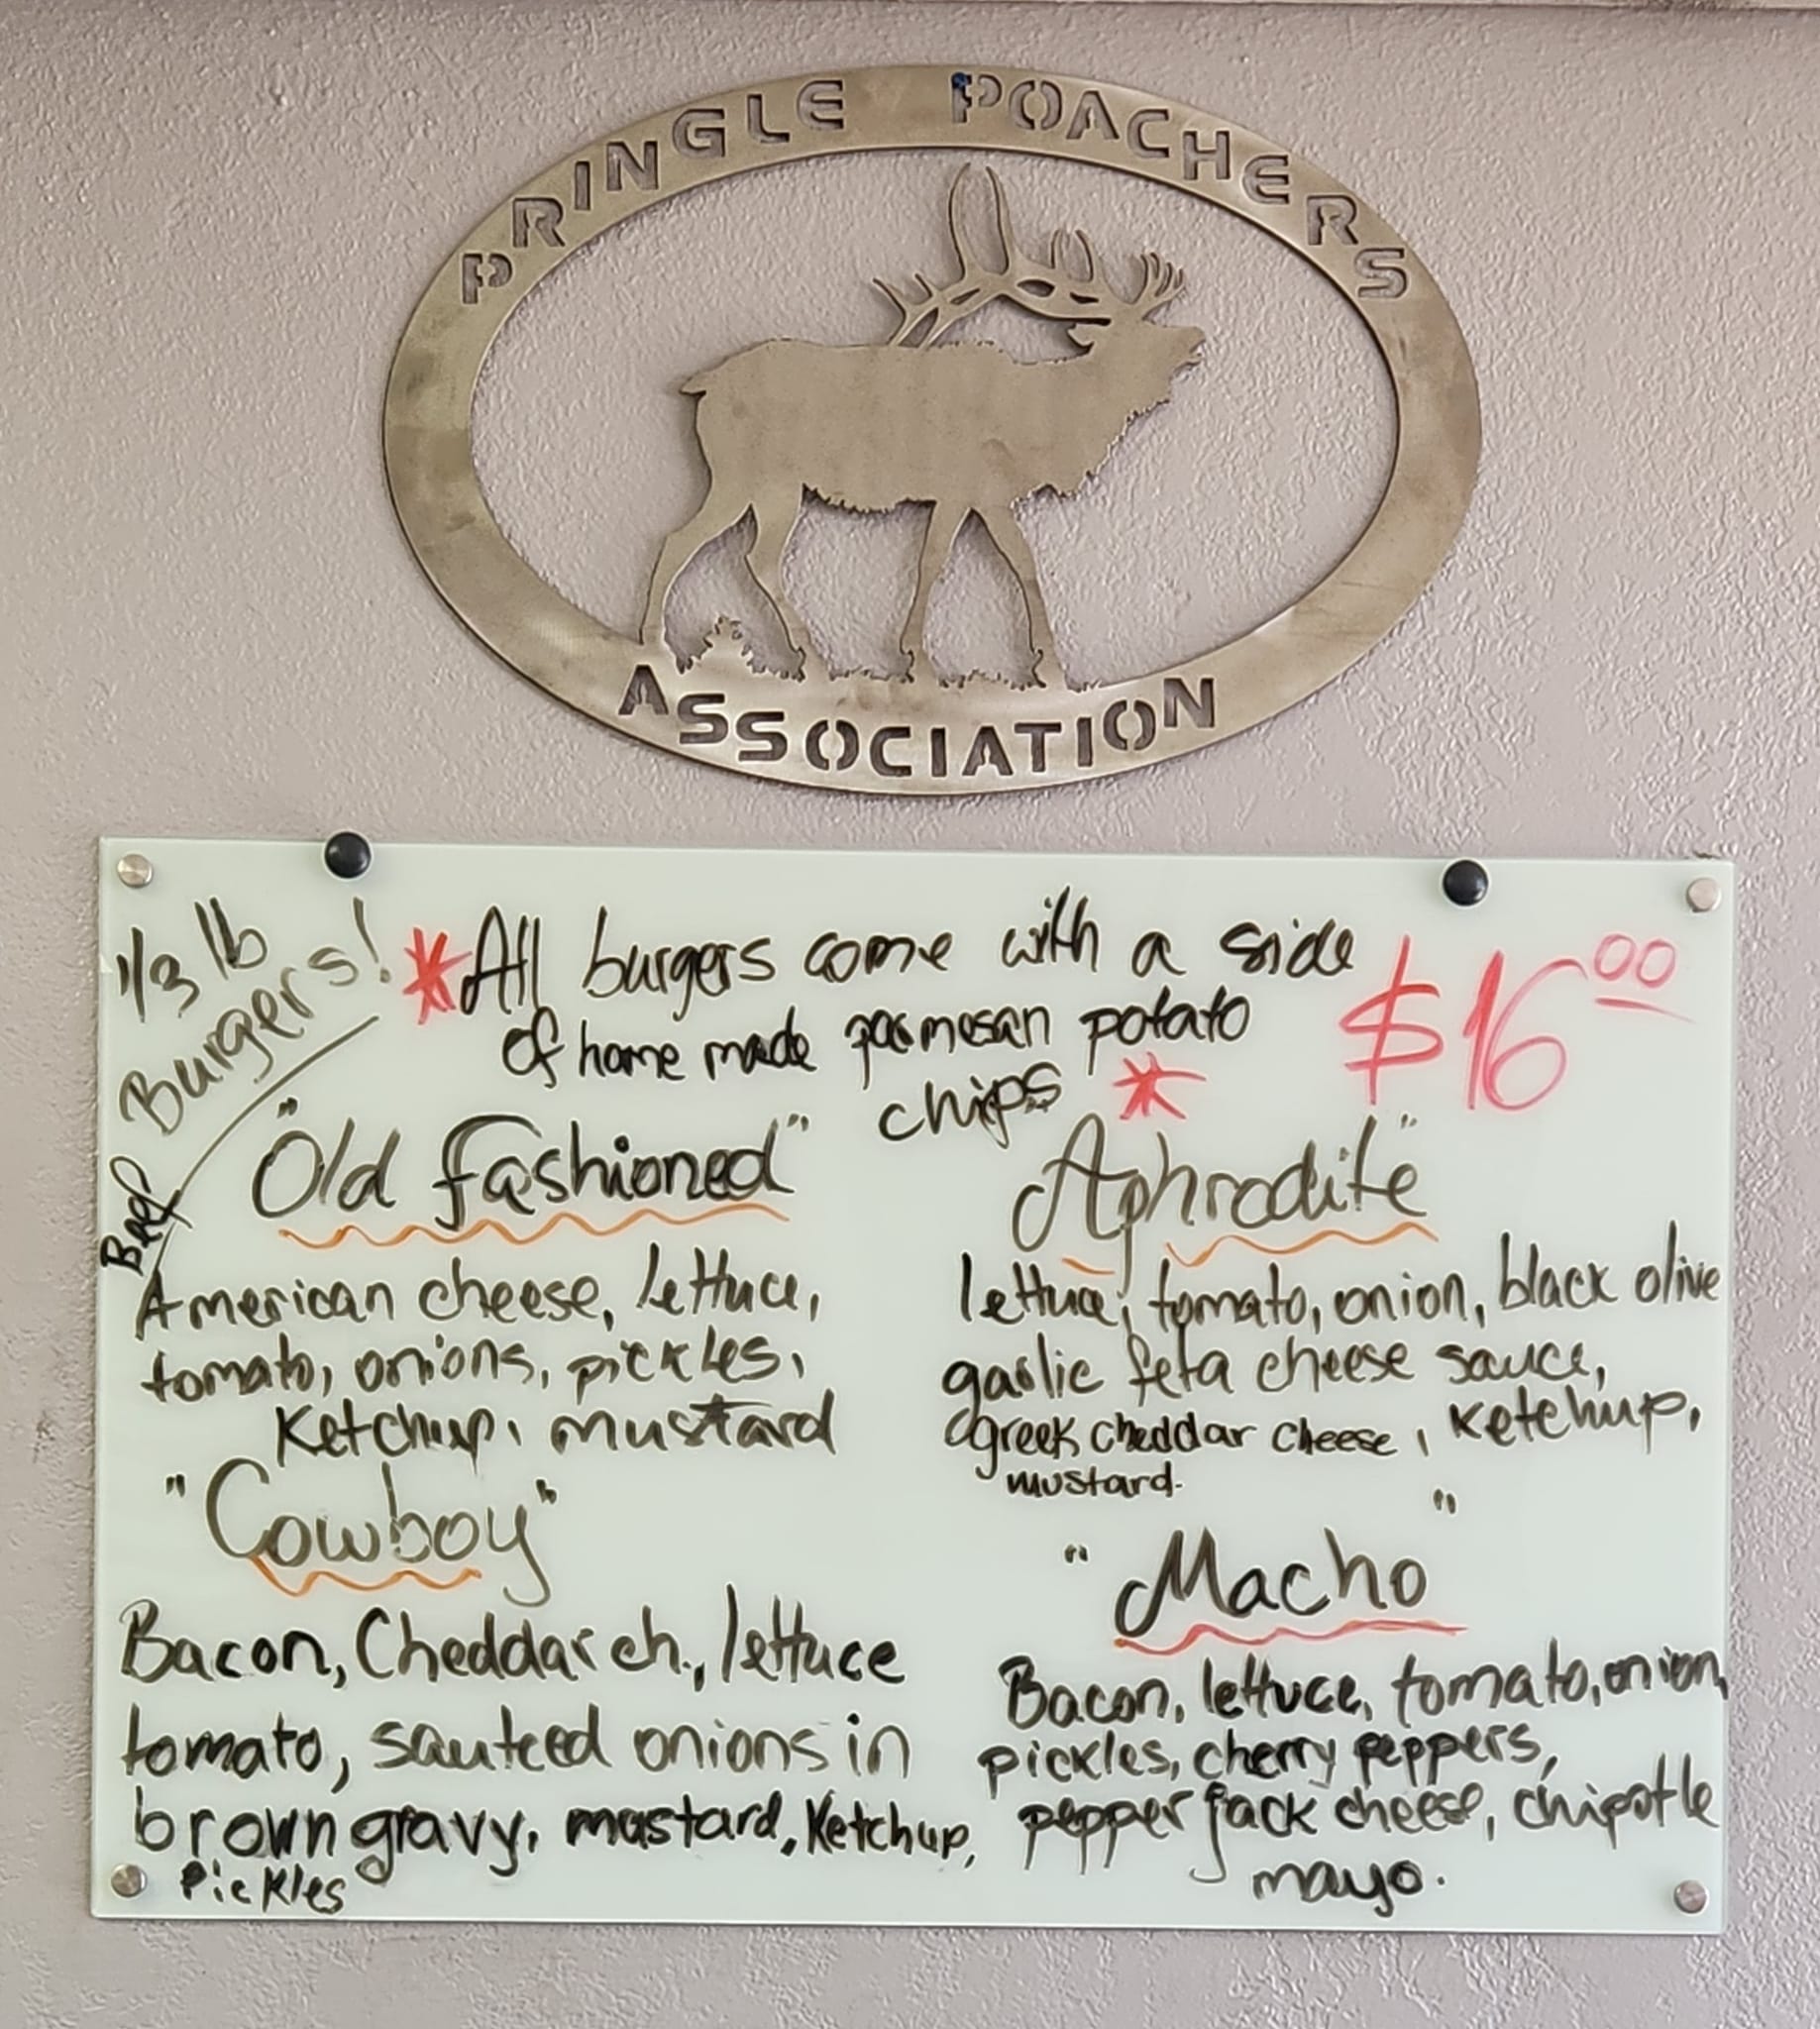 PRINGLE POACHERS
ASSOCIATION
1/3 lb
Burgers!
Beef
*All burgers come with a side
of home made parmesan potato
chips *
$16.00
"Old fashioned"
American cheese, lettuce,
tomato, onions, pickles,
Ketchup, mustard
"Cowboy"
Bacon, Cheddar ch., lettuce
tomato, sauteed onions in
brown gravy, mustard, Ketchup,
Pickles
Aphrodite"
lettuce, tomato, onion, black olive
garlic feta cheese sauce,
greek cheddar cheese, Ketchup,
mustard.
"Macho"
Bacon, lettuce, tomato, onion,
pickles, cherry peppers,
pepper jack cheese, chipotle
mayo.